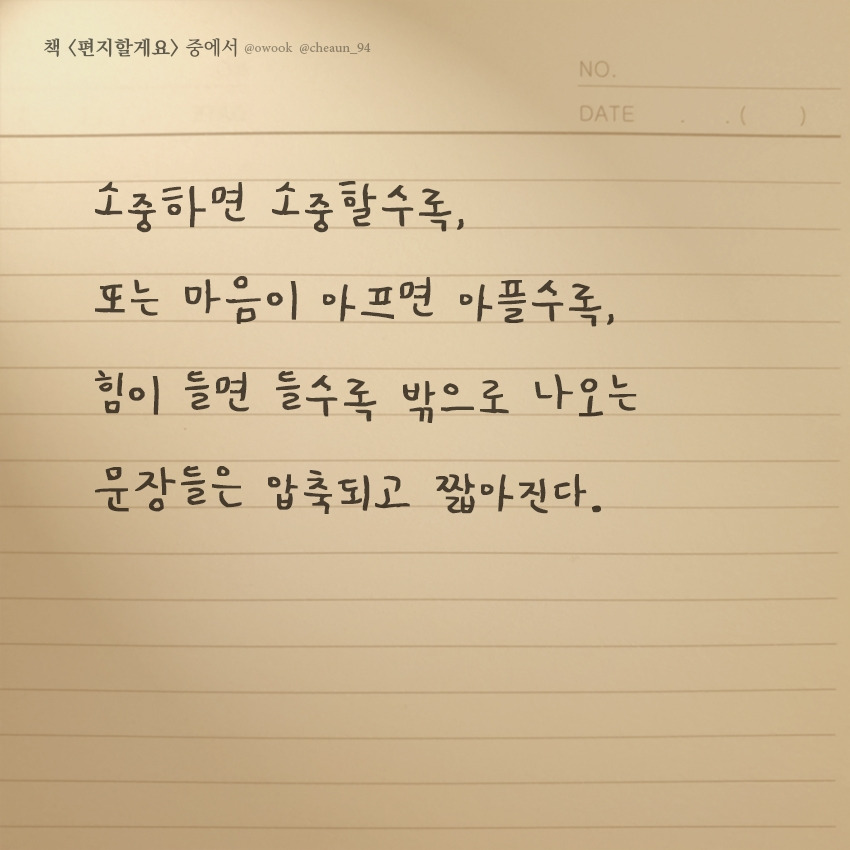 책 <편지할게요> 중에서 @owook @cheaun_94
NO.
DATE . . ( )
소중하면 소중할수록,
또는 마음이 아프면 아플수록,
힘이 들면 들수록 밖으로 나오는
문장들은 압축되고 짧아진다.